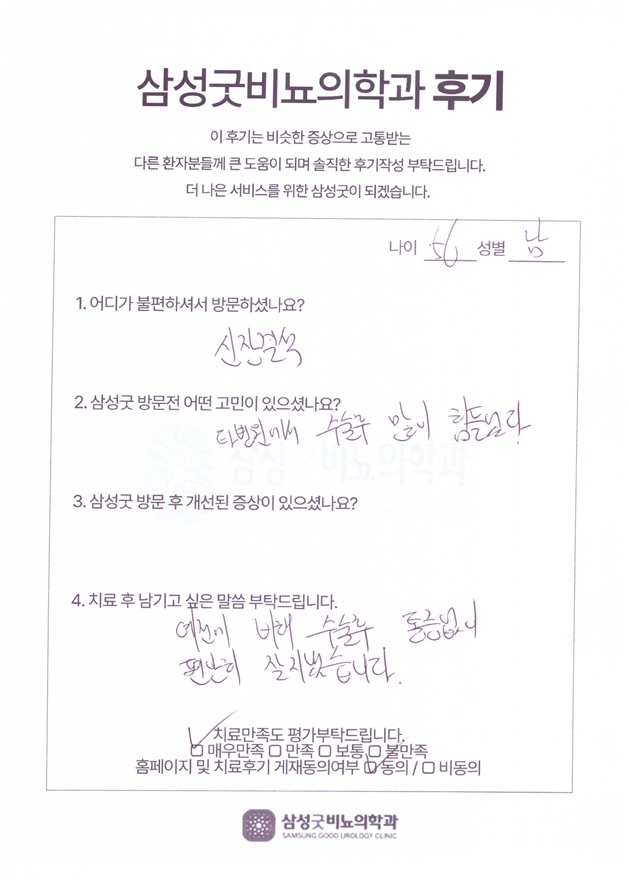 삼성굿비뇨의학과 후기
이 후기는 비슷한 증상으로 고통받는
다른 환자분들께 큰 도움이 되며 솔직한 후기작성 부탁드립니다.
더 나은 서비스를 위한 삼성굿이 되겠습니다.
나이 56 성별 남
1. 어디가 불편하셔서 방문하셨나요?
신장결석
2. 삼성굿 방문전 어떤 고민이 있으셨나요?
타병원에서 수술후 많이 힘듭니다.
3. 삼성굿 방문 후 개선된 증상이 있으셨나요?
4. 치료 후 남기고 싶은 말씀 부탁드립니다.
예전에 비해 수술후 통증없이
편안히 잘지냈습니다.
치료만족도 평가부탁드립니다.
매우만족 만족 보통 불만족
홈페이지 및 치료후기 게재동의여부 동의 / 비동의
삼성굿비뇨의학과
SAMSUNG GOOD UROLOGY CLINIC